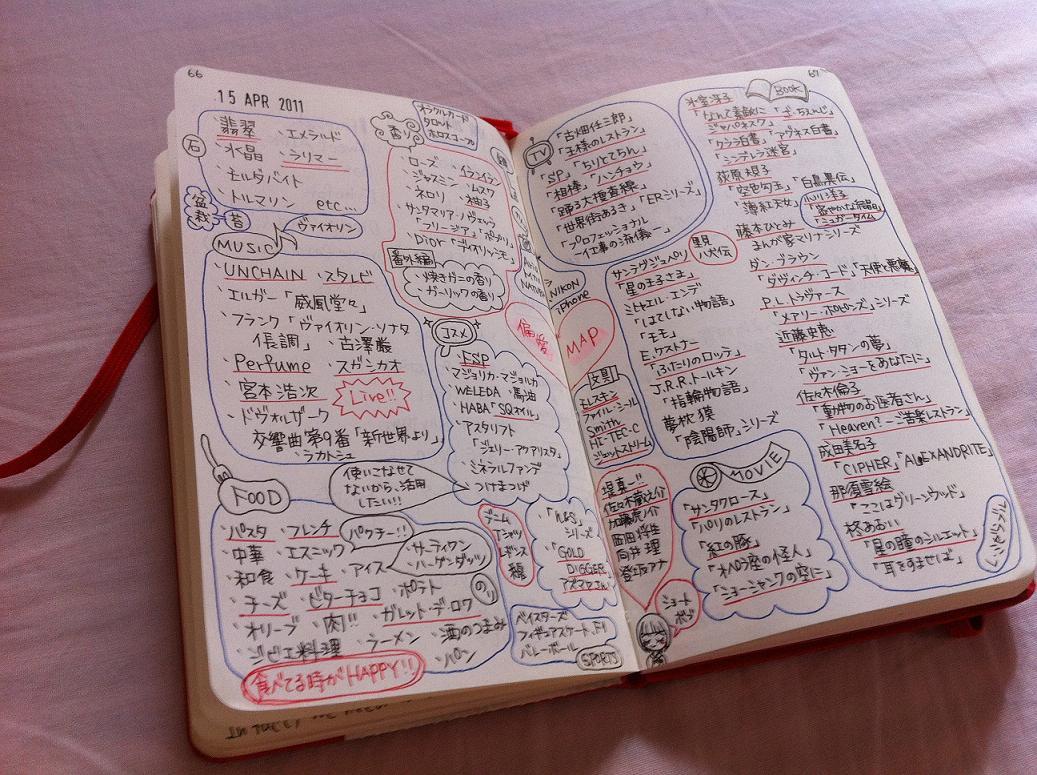 66
15 APR 2011
石
・翡翠 ・エメラルド
・水晶 ・ラリマー
・モルダバイト
・トルマリン etc...
盆栽
苔
ヴァイオリン
MUSIC
・UNCHAIN ・スタレビ
・エルガー「威風堂々」
・フランク「ヴァイオリン・ソナタ
イ長調」 ・古澤巌
・Perfume ・スガシカオ
・宮本浩次
Live!!
・ドヴォルザーク
交響曲第9番「新世界より」
・ラカトシュ
FOOD
・パスタ ・フレンチ
パクチー!!
・中華 ・エスニック
・和食 ・ケーキ ・アイス
サーティワン
ハーゲンダッツ
・チーズ ・ビターチョコ ・ポテト
のり
・オリーブ ・肉!! ・ガレット・デ・ロワ
・ジビエ料理 ・ラーメン ・酒のつまみ
・パン
食べてる時がHAPPY!!
オラクルカード
タロット
ホロスコープ
香り
・ローズ ・イランイラン
・ジャスミン ・ムスク
・ネロリ ・柚子
・サンタマリア・ノヴェッラ
「フリージア」「ポプリ」
・Dior
番外編
・焼きガニの香り
・ガーリックの香り
コスメ
・FSP
・マジョリカ・マジョルカ
・WELEDA ・馬油
・HABA「SQオイル」
・アスタリフト
「ジェリー・アクアリスタ」
・ミネラルファンデ
・つけまつげ
使いこなせて
ないから、活用
したい!!
デニム
Tシャツ
レギンス
シリーズ
「GOLD
DIGGER」
ベイスターズ
フィギュアスケート F1
バレーボール
SPORTS
NIKON
iPhone
偏愛
MAP
文具
モレスキン
ファイル・シール
Smith
HI-TEC-C
ジェットストリーム
堤真一
佐々木蔵之介
加藤虎ノ介
西田将生
向井理
登坂アナ
ショート
ボブ
67
TV
「古畑任三郎」
「王様のレストラン」
「ちりとてちん」
「SP」
「相棒」 「ハンチョウ」
「踊る大捜査線」
「世界街あるき」 「ERシリーズ」
「プロフェッショナル
―仕事の流儀―」
里見
八犬伝
サンテグジュペリ
「星の王子さま」
ミヒャエル・エンデ
「はてしない物語」
「モモ」
E.ケストナー
「ふたりのロッテ」
J.R.R.トールキン
「指輪物語」
夢枕獏
「陰陽師」シリーズ
MOVIE
「サンタクロース」
「パリのレストラン」
「紅の豚」
「オペラ座の怪人」
「ショーシャンクの空に」
BOOK
氷室冴子
「なんて素敵に
ジャパネスク」
「ざ・ちぇんじ」
「クララ白書」 「アグネス白書」
「シンデレラ迷宮」
荻原規子
「空色勾玉」 「白鳥異伝」
「薄紅天女」
藤本ひとみ
まんが家マリナシリーズ
ダン・ブラウン
「ダヴィンチ・コード」「天使と悪魔」
P.L.トラヴァース
「メアリー・ポピンズ」シリーズ
近藤史恵
「タルト・タタンの夢」
「ヴァン・ショーをあなたに」
佐々木倫子
「動物のお医者さん」
「Heaven? ―ご苦楽レストラン」
成田美名子
「CIPHER」「ALEXANDRITE」
那須雪絵
「ここはグリーンウッド」
柊あおい
「星の瞳のシルエット」
「耳をすませば」